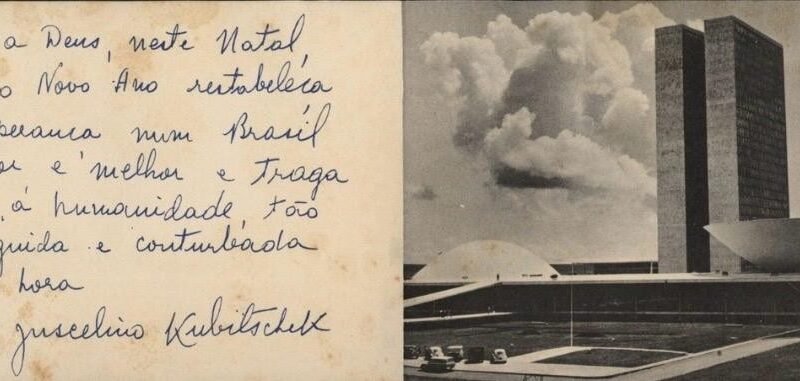 a Deus, neste Natal,
o Novo Ano restabeleça
perança num Brasil
or e melhor e traga
, á humanidade, tão
guida e conturbada
hora
Juscelino Kubitschek